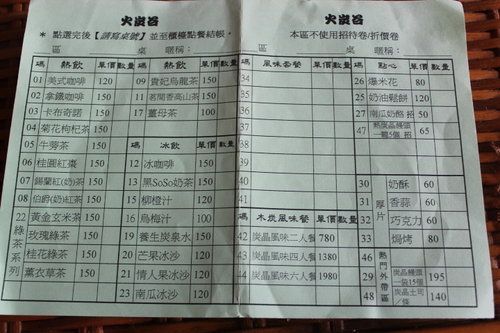 火炭谷
火炭谷
＊ 點選完後【請寫桌號】並至櫃檯點餐結帳。
本區不使用招待卷/折價卷
區 桌 暱稱：
區 桌 暱稱：
碼 熱飲 單價 數量 碼 熱飲 單價 數量 碼 風味套餐 單價 數量 碼 點心 單價 數量
01 美式咖啡 120 09 貴妃烏龍茶 150 34 26 爆米花 80
02 拿鐵咖啡 150 11 茗閣香高山茶 150 35 25 奶油鬆餅 120
03 卡布奇諾 150 17 薑母茶 100 36 27 南瓜奶酪 招
04 菊花枸杞茶 150 37 47 炭晶饅頭一籠5個 招 65
05 牛蒡茶 150 碼 冰飲 單價 數量 38
06 桂圓紅棗 150 12 冰咖啡 150 39
07 錫蘭紅(奶)茶 150 13 黑SoSo奶茶 150 40
08 伯爵(奶)紅茶 150 15 柳橙汁 120 41 30 厚片 奶酥 60
22 綠茶系列 黃金玄米茶 150 16 烏梅汁 100 碼 木炭風味餐 單價 數量 31 香蒜 60
玫瑰綠茶 150 19 養生炭泉水 150 42 炭晶風味二人餐 780 32 巧克力 60
桂花綠茶 150 20 芒果冰沙 150 43 炭晶風味四人餐 1380 33 焗烤 80
薰衣草茶 150 21 情人果冰沙 150 44 炭晶風味六人餐 1980 46 熱門外帶區
23 南瓜冰沙 120 29 炭晶饅頭一袋15個 195
48 炭晶土司/條 140